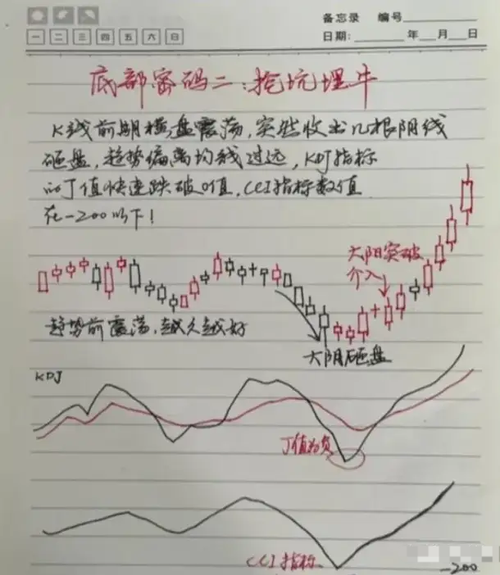 备忘录 编号
一 二 三 四 五 六 日
日期: 年 月 日
底部密码二:挖坑埋牛
K线前期横盘震荡,突然收出几根阴线
砸盘,趋势偏离均线过远,KDJ指标
的J值快速跌破0值,CCI指标数值
在-200以下!
大阳突破
介入
趋势前震荡,越久越好
大阴砸盘
KDJ
J值为负
CCI指标
-200